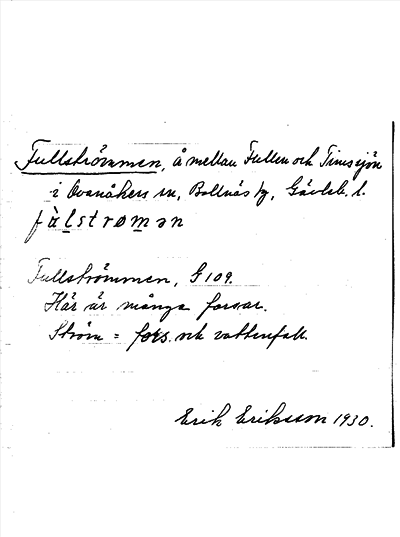 Fullströmmen, å mellan Fullen och Timsjön
i Ovanåkers sn, Bollnäs tg, Gävleb. l.
fu̇lstrømən
Fullströmmen, G 109.
Här är många forsar.
Ström = fors och vattenfall.
Erik Eriksson 1930.